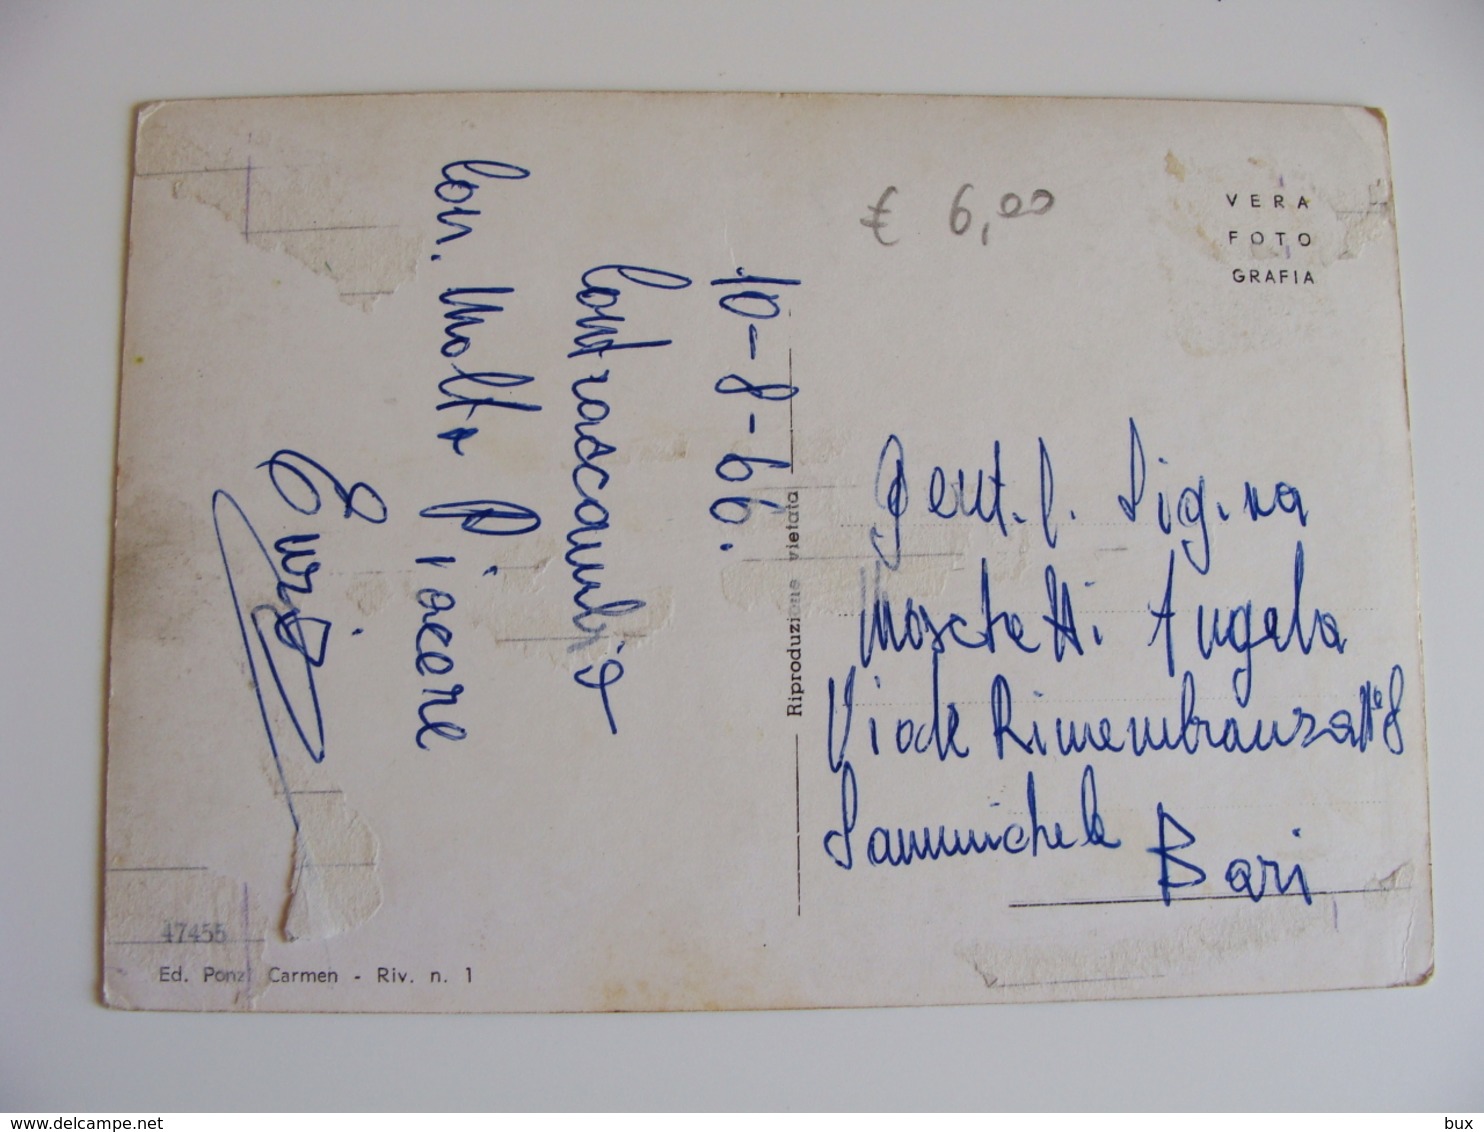 10-8-66.
Contraccambio
Con. Molto Piacere
€ 6,00
VERA
FOTO
GRAFIA
Gent.l. Sig.na
Angela
Viale Rimembranza N° 8
Sammichele
Bari
Riproduzione vietata
47455
Ed. Ponzi Carmen - Riv. n. 1
delcampe.net
bux